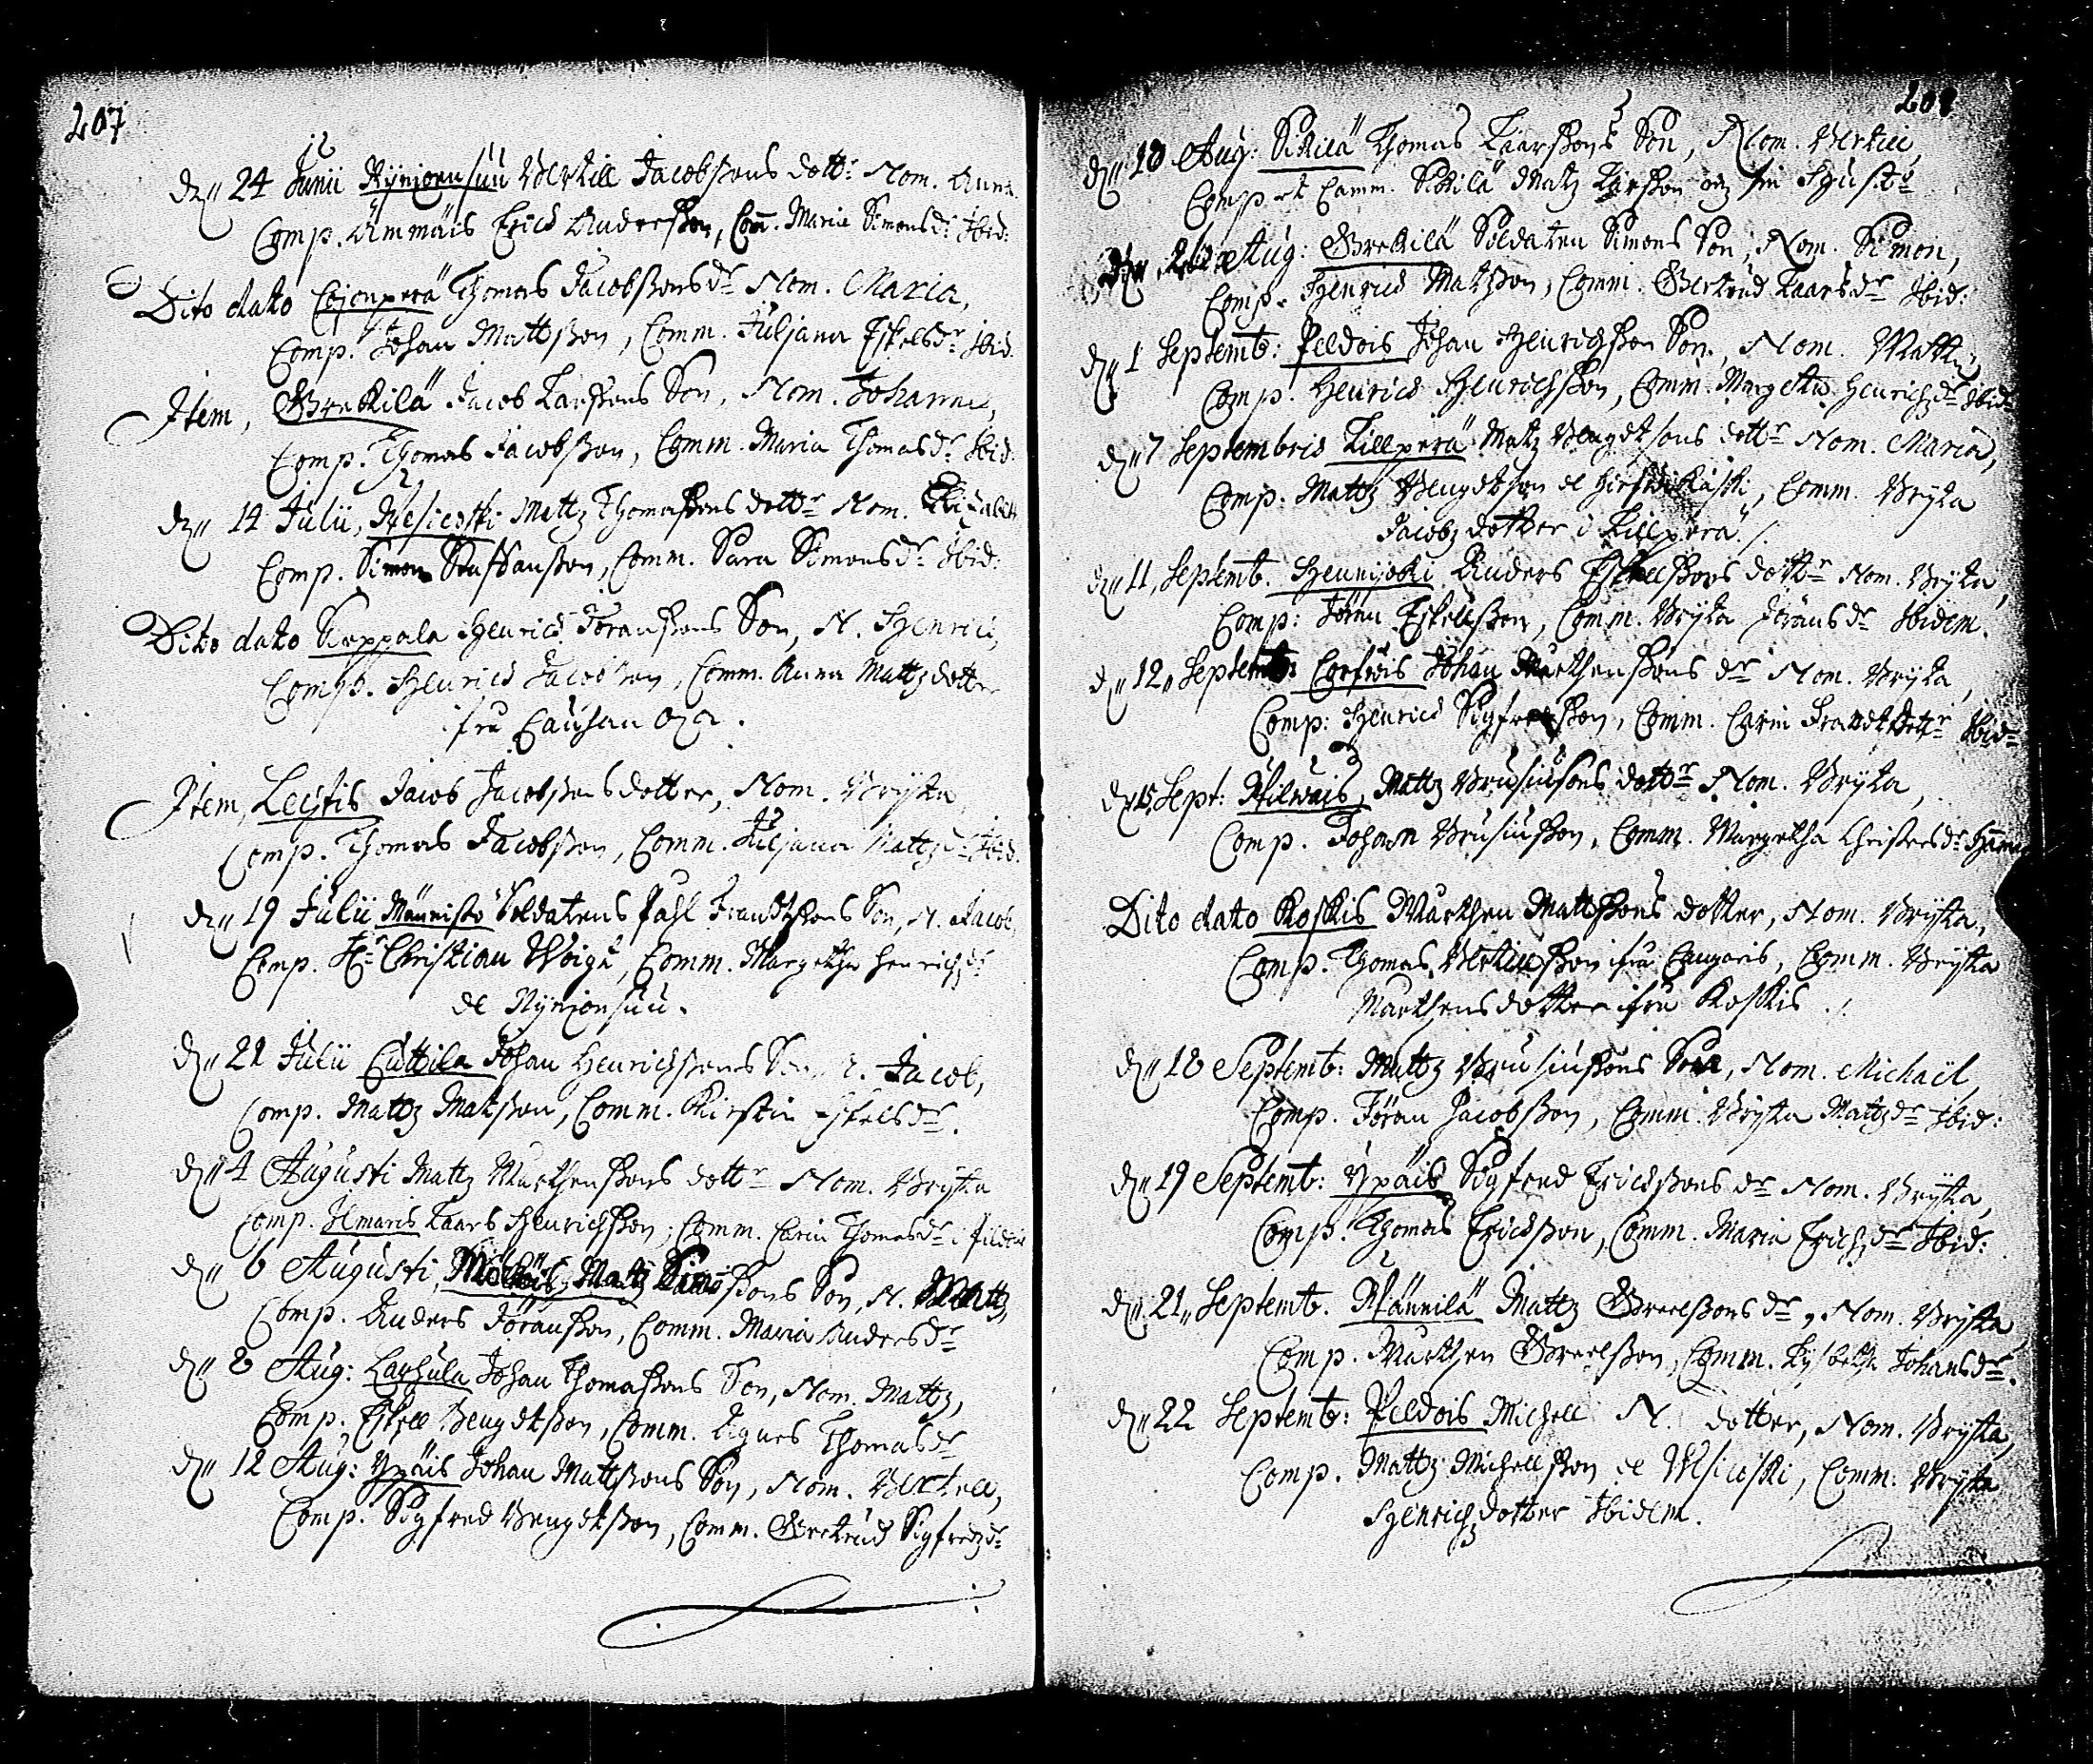 207
dn 24 Junii Kyrjonsuu Bertill Jacobssons dottr Nom. Anna
Comp. Ammäis Erich Andersson, Com. Maria Simonsdr Ibid:
Dito dato Cojonperä Thomas Jacobssonsdr Nom. Maria,
Comp. Johan Mattsson, Comm. Juljana Eskelsdr Ibid.
Item, Grekilä Jacob Larssons Son, Nom. Johannes,
Comp. Thomas Jacobsson, Comm. Maria Thomasdr Ibid.
dn 14 Julii, Vesicoski Mattz Thomassons dottr Nom.
Comp. Simon Staffansson, Comm. Sara Simonsdr Ibid:
Dito dato Seppala Henrich Jöranssons Son, N. Henrich,
Comp. Henrich Jacobsson, Comm. Anna Mattzdotter
ifrå Cauhanoja.
Item, Leistis Jacob Jacobssons dotter, Nom. Brijta
Comp. Thomas Jacobsson, Comm. Juljana Mattzdr Ibid.
dn 19 Julii Männistö Soldatens Påhl Frandtzsons Son, N. Jacob,
Comp. Hr Christian Woigt, Comm. Margetha Henrichzdr
de Kyrjonsuu.
dn 21 Julii Cuttila Johan Henrichssons Son, N. Jacob,
Comp. Mattz Matsson, Comm. Kirstin Eskelsdr.
dn 4 Augusti Mattz Marthenssons dottr Nom. Brijta
Comp. Ilmaris Laars Henrichsson, Comm. Carin Thomasdr i
dn 6 Augusti, Mattz Simonssons Son, N. Mattz,
Comp. Anders Jöransson, Comm. Maria Andersdr
dn 8 Aug: Layhula Johan Thomassons Son, Nom. Mattz,
Comp. Eskell Bengdtsson, Comm. Agnes Thomasdr
dn 12 Aug: Ypäis Johan Mattssons Son, Nom. Bertill,
Comp. Sigfred Bengdtsson, Comm. Gertrud Sigfredzdr
208
dn 18 Aug: Sikilä Thomas Laarssons Son, Nom. Bertill,
Comp. et Comm. Sikilä Matz Larsson och sin Hustr
dn Aug: Grekilä Soldaten Simons Son, Nom. Simon,
Comp. Henrich Matzson, Comm. Gertrud Laarsdr Ibid:
dn 1 Septemb: Peldois Johan Henrichsson Son, Nom. Mattz,
Comp. Henrich Henrichsson, Comm. Margetha Henrichzdr Ibid
dn 7 Septembris Lillperä Matz Bengdtsons dottr Nom. Maria,
Comp. Mattz Bengdtson de Hirfvikåski, Comm. Brijta
Jacobz dotter i Lillperä /.
dn 11, Septemb. Hennijoki Anders Eskellssons dottr Nom. Brijta,
Comp: Jören Eskellsson, Comm. Brijta Jöransdr Ibidem.
dn 12, Septemb: Corfwis Johan Marthenssons dr Nom. Brijta,
Comp: Henrich Sigfredsson, Comm. Carin Frandtzdottr Ibid
dn 15 Sept: Mattz Brusiusons dottr Nom. Brijta,
Comp. Johan Brusiusson, Comm. Margetha Christersdr
Dito dato Koskis Marthen Mattssons dotter, Nom. Brijta,
Comp. Thomas Bertillsson ifrå Cangaris, Comm. Brijta
Marthensdotter ifrå Koskis ./.
dn 18 Septemb: Mattz Brusiussons Son, Nom. Michaël,
Comp. Jöran Jacobsson, Comm. Brijta Matzdr Ibid:
dn 19 Septemb: Ypäis Sigfred Erichssons dr Nom. Brijta,
Comp. Thomas Erichsson, Comm. Maria Erichzdr Ibid:
dn 21, Septemb. Männilä Mattz Greelssons dr, Nom. Brijta
Comp. Marthen Greelsson, Comm. Lijsbetha Johansdr.
dn 22 Septemb: Peldois Michell N. dotter, Nom. Brijta,
Comp. Mattz Michellsson de Vesicoski, Comm. Brijta
Henrichzdotter Ibidem.